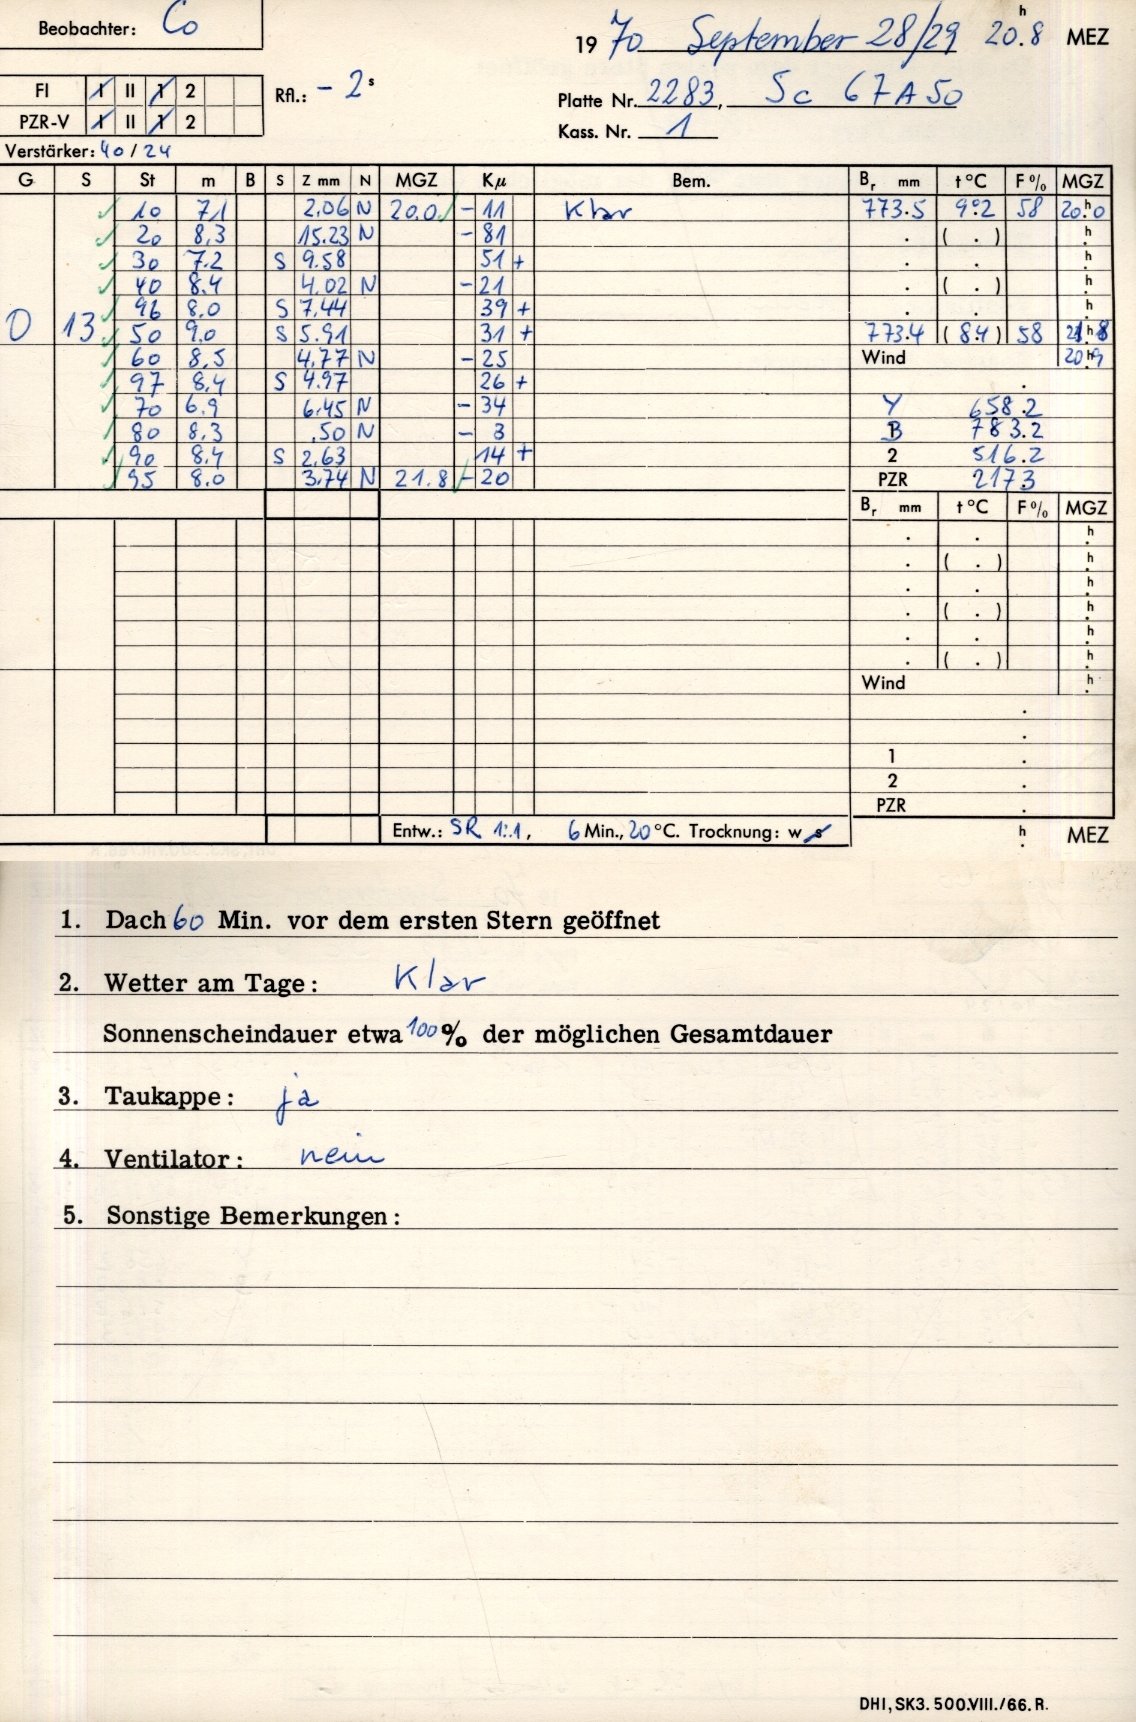 Beobachter: Co
1970 September 28/29 20h.8 MEZ
FI I II 1 2
Rfl.: - 2s
Platte Nr. 2283, Sc 67A50
PZR-V I II 1 2
Kass. Nr. 1
Verstärker: 40 / 24
G S St m B S Z mm N MGZ Kµ Bem. Br mm t °C F % MGZ
10 7.1 2.06 N 20.0 - 11 Klar 773.5 9.2 58 20h.0
20 8,3 15.23 N - 81 . ( . ) h.
30 7.2 S 9.58 51 + . . h.
40 8.4 4.02 N - 21 . ( . ) h.
96 8.0 S 7.44 39 + . . h.
0 13 50 9.0 S 5.91 31 + 773.4 ( 8.4 ) 58 21h.8
60 8,5 4.77 N - 25 Wind 20h.9
97 8,4 S 4.97 26 + .
70 6.9 6.45 N - 34 Y 658.2
80 8.3 .50 N - 3 B 783.2
90 8.4 S 2.63 14 + 2 516.2
95 8.0 3.74 N 21.8 - 20 PZR 2173
Br mm t °C F % MGZ
. . h.
. ( . ) h.
. . h.
. ( . ) h.
. . h.
. ( . ) h.
Wind h.
.
.
1 .
2 .
PZR .
Entw.: SR 1:1, 6 Min., 20 °C. Trocknung: w s h. MEZ
1. Dach 60 Min. vor dem ersten Stern geöffnet
2. Wetter am Tage: Klar
Sonnenscheindauer etwa 100 % der möglichen Gesamtdauer
3. Taukappe: ja
4. Ventilator: nein
5. Sonstige Bemerkungen:
DHI, SK3. 500.VIII./66. R.